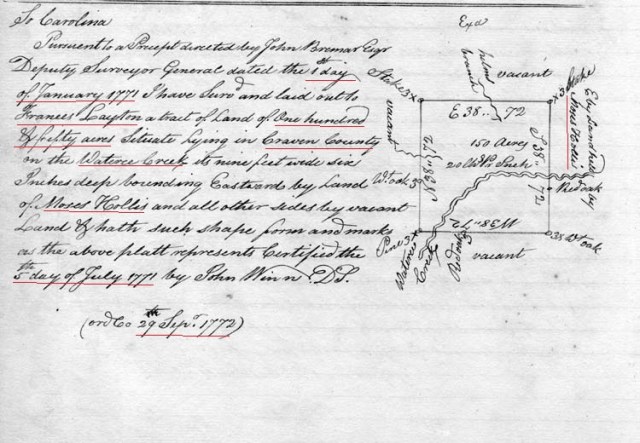 So Carolina
Pursuant to a Precept directed by John Bremar Esqr
Deputy Surveyor General dated the 1st day
of January 1771 I have Survd and laid out to
Frances Layton a tract of Land of One hundred
& fifty acres Situate lying in Craven County
on the Wateree Creek its nine feet wide six
Inches deep bounding Eastward by Land
of Moses Hollis and all other sides by vacant
Land & hath such shape form and marks
as the above platt represents Certified the
5th day of July 1771 by John Winn D.S.
(ord Co 29th Sepr 1772)
Exd
branch
vacant
Stake 3X
X 3 Stake
E 38.. 72
vacant
150 Acres
S 38.. 72
N 38.. 72
W Oak 3
Red Oak
Land held by
Moses Hollis
W 38.. 72
Pine 3
3 W Oak
Wateree
Creek
vacant